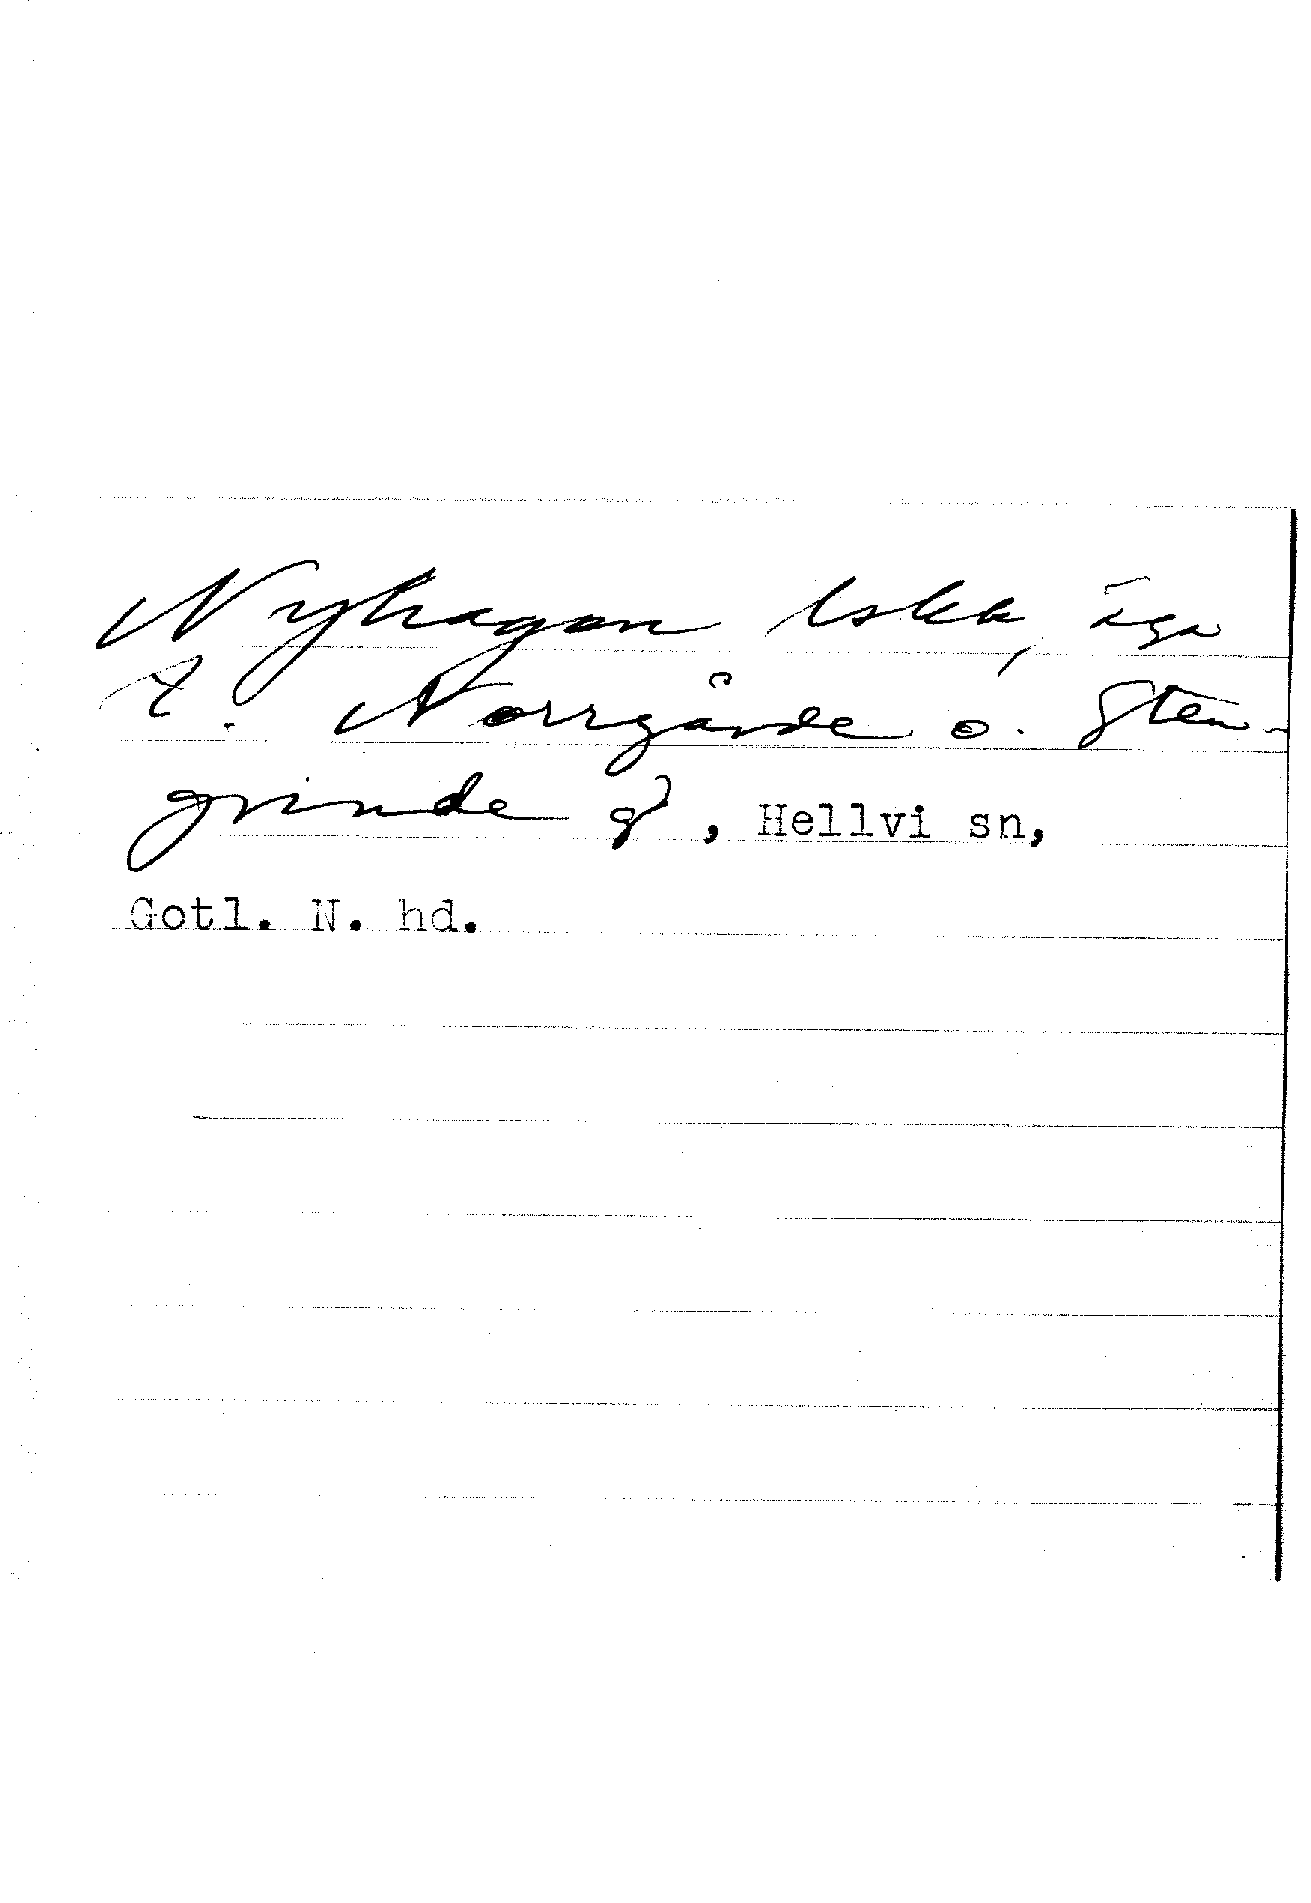 Nyhagan lskk, äga
t. Norrgårde o. Sten-
grinde g, Hellvi sn,
Gotl. N. hd.